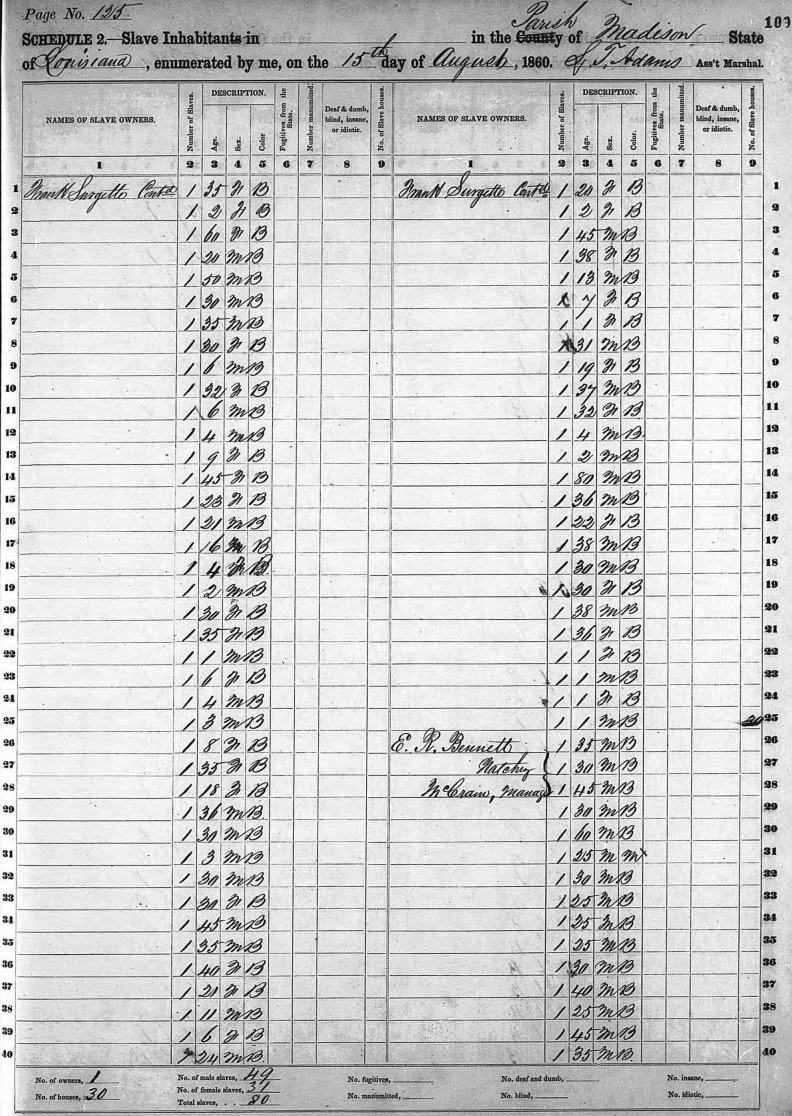 Page No. 125.
109
SCHEDULE 2.—Slave Inhabitants in in the County Parish of Madison State
of Louisiana, enumerated by me, on the 15th day of August, 1860. Ass't Marshal.
NAMES OF SLAVE OWNERS. Number of Slaves. DESCRIPTION. Age. Sex. Color. Fugitives from the State. Number manumitted. Deaf & dumb, blind, insane, or idiotic. No. of Slave houses. NAMES OF SLAVE OWNERS. Number of Slaves. DESCRIPTION. Age. Sex. Color. Fugitives from the State. Number manumitted. Deaf & dumb, blind, insane, or idiotic. No. of Slave houses.
1 2 3 4 5 6 7 8 9 1 2 3 4 5 6 7 8 9
1 Frank Surgette Cont'd 1 35 F B Frank Surgette Cont'd 1 20 F B 1
2 1 2 F B 1 2 F B 2
3 1 60 F B 1 45 M B 3
4 1 20 M B 1 38 F B 4
5 1 50 M B 1 13 M B 5
6 1 30 M B 1 7 F B 6
7 1 35 M B 1 1 F B 7
8 1 30 F B 1 31 M B 8
9 1 6 M B 1 19 F B 9
10 1 32 F B 1 37 M B 10
11 1 6 M B 1 32 F B 11
12 1 4 M B 1 4 M B 12
13 1 9 F B 1 2 M B 13
14 1 45 F B 1 80 M B 14
15 1 23 F B 1 36 M B 15
16 1 21 M B 1 22 F B 16
17 1 16 M B 1 38 M B 17
18 1 4 F B 1 30 M B 18
19 1 2 M B 1 30 F B 19
20 1 30 F B 1 38 M B 20
21 1 35 F B 1 36 F B 21
22 1 1 M B 1 1 F B 22
23 1 6 F B 1 1 M B 23
24 1 4 M B 1 1 F B 24
25 1 3 M B 1 1 M B 30 25
26 1 8 F B E. R. Bennett 1 35 M B 26
27 1 35 F B Natchez 1 30 M B 27
28 1 18 F B McCrain, Manager 1 45 M B 28
29 1 36 M B 1 30 M B 29
30 1 30 M B 1 60 M B 30
31 1 3 M B 1 25 M M 31
32 1 30 M B 1 30 M B 32
33 1 30 F B 1 25 M B 33
34 1 45 M B 1 25 M B 34
35 1 35 M B 1 25 M B 35
36 1 40 F B 1 30 M B 36
37 1 21 F B 1 40 M B 37
38 1 11 M B 1 25 M B 38
39 1 6 F B 1 45 M B 39
40 1 24 M B 1 35 M B 40
No. of owners, 1 No. of male slaves, 49 No. fugitives, No. deaf and dumb, No. insane,
No. of houses, 30 No. of female slaves, 31 No. manumitted, No. blind, No. idiotic,
Total slaves, 80